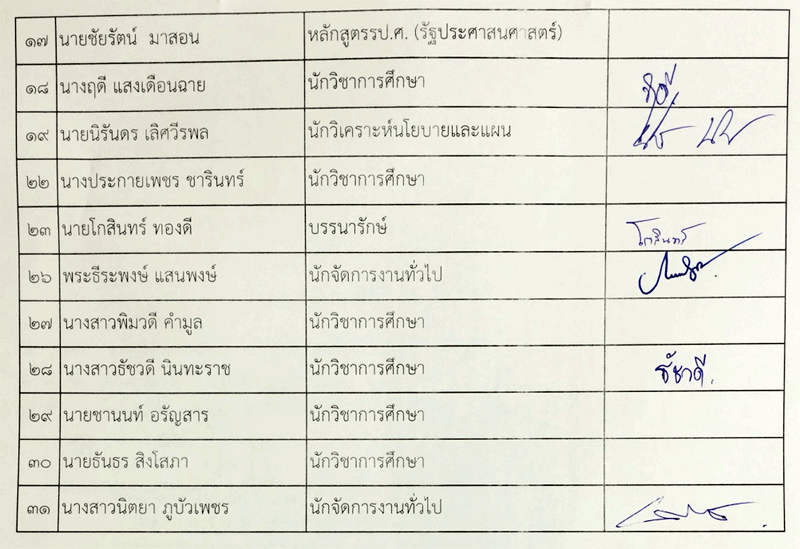 ๑๗ นายชัยรัตน์ มาสอน หลักสูตรรป.ศ. (รัฐประศาสนศาสตร์)
๑๘ นางฤดี แสงเดือนฉาย นักวิชาการศึกษา
๑๙ นายนิรันดร เลิศวีรพล นักวิเคราะห์นโยบายและแผน
๒๒ นางประกายเพชร ชารินทร์ นักวิชาการศึกษา
๒๓ นายโกสินทร์ ทองดี บรรนารักษ์ โกสินทร์
๒๖ พระธีระพงษ์ แสนพงษ์ นักจัดการงานทั่วไป
๒๗ นางสาวพิมวดี คำมูล นักวิชาการศึกษา
๒๘ นางสาวธัชวดี นินทะราช นักวิชาการศึกษา ธัชวดี.
๒๙ นายชานนท์ อรัญสาร นักวิชาการศึกษา
๓๐ นายธันธร สิงโสภา นักวิชาการศึกษา
๓๑ นางสาวนิตยา ภูบัวเพชร นักจัดการงานทั่วไป